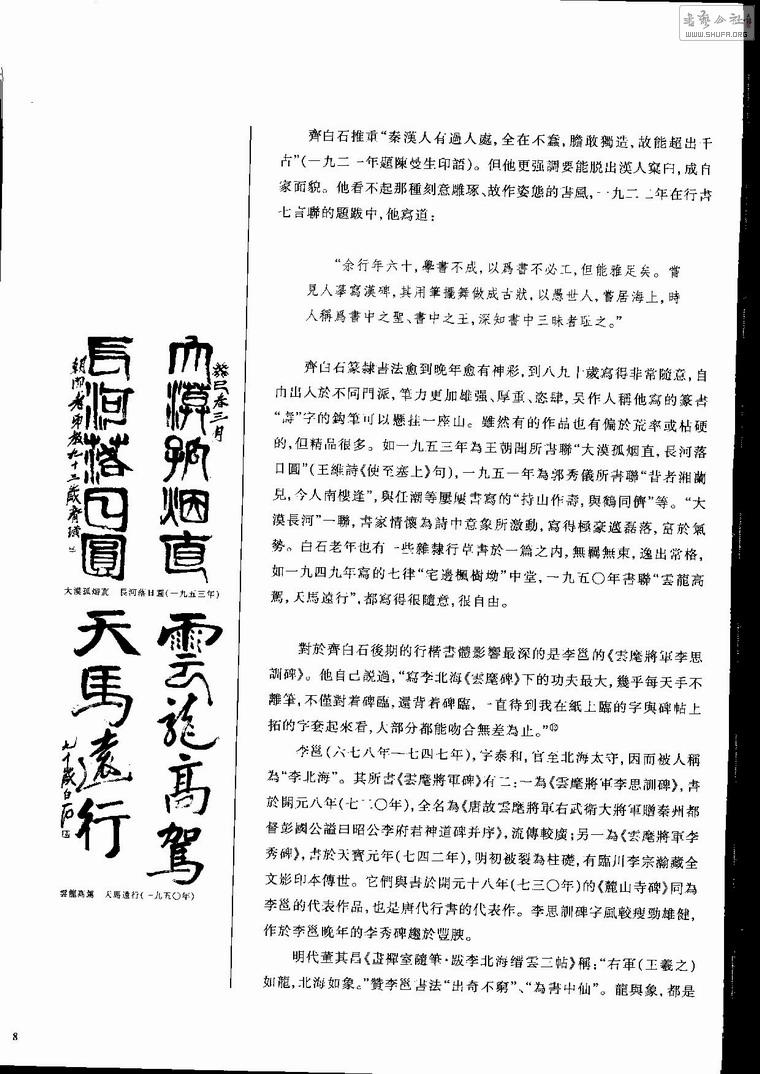 書藝公社
WWW.SHUFA.ORG
齊白石推重“秦漢人有過人處,全在不蠢,膽敢獨造,故能超出千
古”(一九二一年題陳曼生印語)。但他更强調要能脱出漢人窠臼,成自
家面貌。他看不起那種刻意雕琢、故作姿態的書風,一九二二年在行書
七言聯的題跋中,他寫道:
“余行年六十,學書不成,以爲書不必工,但能雅足矣。嘗
見人摹寫漢碑,其用筆擺舞做成古狀,以愚世人,嘗居海上,時
人稱爲書中之聖、書中之王,深知書中三昧者耻之。”
齊白石篆隸書法愈到晚年愈有神彩,到八九十歲寫得非常隨意,自
由出入於不同門派,筆力更加雄强、厚重、恣肆,吴作人稱他寫的篆書
“壽”字的鈎筆可以懸挂一座山。雖然有的作品也有偏於荒率或枯硬
的,但精品很多。如一九五三年為王朝聞所書聯“大漠孤烟直,長河落
日圓”(王維詩《使至塞上》句),一九五一年為郭秀儀所書聯“昔者湘蘭
兒,今人南樓逢”,與任潮等屢屢書寫的“持山作壽,與鶴同儕”等。“大
漠長河”一聯,書家情懷為詩中意象所激動,寫得極豪邁磊落,富於氣
勢。白石老年也有一些雜隸行草書於一篇之内,無羈無束,逸出常格,
如一九四九年寫的七律“宅邊楓樹坳”中堂,一九五〇年書聯“雲龍高
駕,天馬遠行”,都寫得很隨意,很自由。
對於齊白石後期的行楷書體影響最深的是李邕的《雲麾將軍李思
訓碑》。他自己説過,“寫李北海《雲麾碑》下的功夫最大,幾乎每天手不
離筆,不僅對着碑臨,還背着碑臨,一直待到我在紙上臨的字與碑帖上
拓的字套起來看,大部分都能吻合無差為止。”⑩
李邕(六七八年—七四七年),字泰和,官至北海太守,因而被人稱
為“李北海”。其所書《雲麾將軍碑》有二:一為《雲麾將軍李思訓碑》,書
於開元八年(七二〇年),全名為《唐故雲麾將軍右武衛大將軍贈秦州都
督彭國公謚曰昭公李府君神道碑并序》,流傳較廣;另一為《雲麾將軍李
秀碑》,書於天寶元年(七四二年),明初被裂為柱礎,有臨川李宗瀚藏全
文影印本傳世。它們與書於開元十八年(七三〇年)的《麓山寺碑》同為
李邕的代表作品,也是唐代行書的代表作。李思訓碑字風較瘦勁雄健,
作於李邕晚年的李秀碑趨於豐腴。
明代董其昌《畫禪室隨筆·跋李北海縉雲三帖》稱:“右軍(王羲之)
如龍,北海如象。”贊李邕書法“出奇不窮”、“為書中仙”。龍與象,都是
大漠孤烟直
癸巳春三月
長河落日圓
朝聞老弟教九十三歲齊璜
大漠孤烟直　長河落日圓(一九五三年)
雲龍高駕
天馬遠行
九十歲白石
雲龍高駕　天馬遠行(一九五〇年)
8